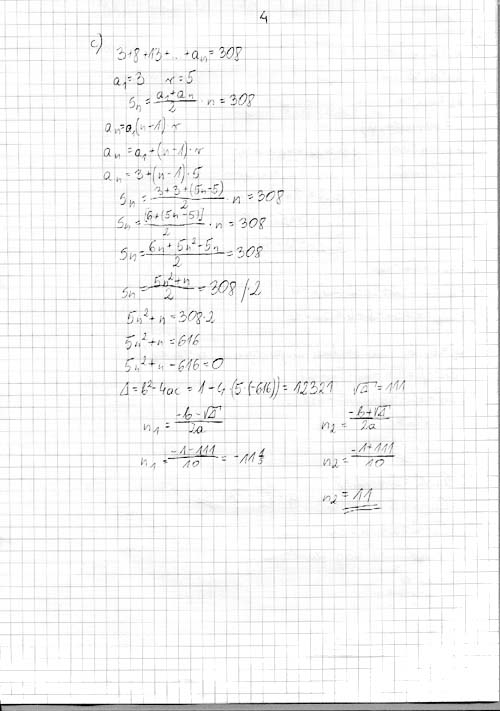 4
c)
3+8+13+..+aₙ=308
a₁=3 r=5
Sₙ=(a₁+aₙ)/2 · n=308
aₙ=a₁(n-1) r
aₙ=a₁+(n-1)·r
aₙ=3+(n-1)·5
Sₙ=(3+3+(5n-5))/2 · n=308
Sₙ=[6+(5n-5)]/2 · n=308
Sₙ=(6n+5n²-5n)/2=308
Sₙ=(5n²+n)/2=308 /·2
5n²+n=308·2
5n²+n=616
5n²+n-616=0
Δ=b²-4ac=1-4·(5·(-616))=12321 √Δ=111
n₁=(-b-√Δ)/2a n₂=(-b+√Δ)/2a
n₁=(-1-111)/10= n₂=(-1+111)/10
n₂=11